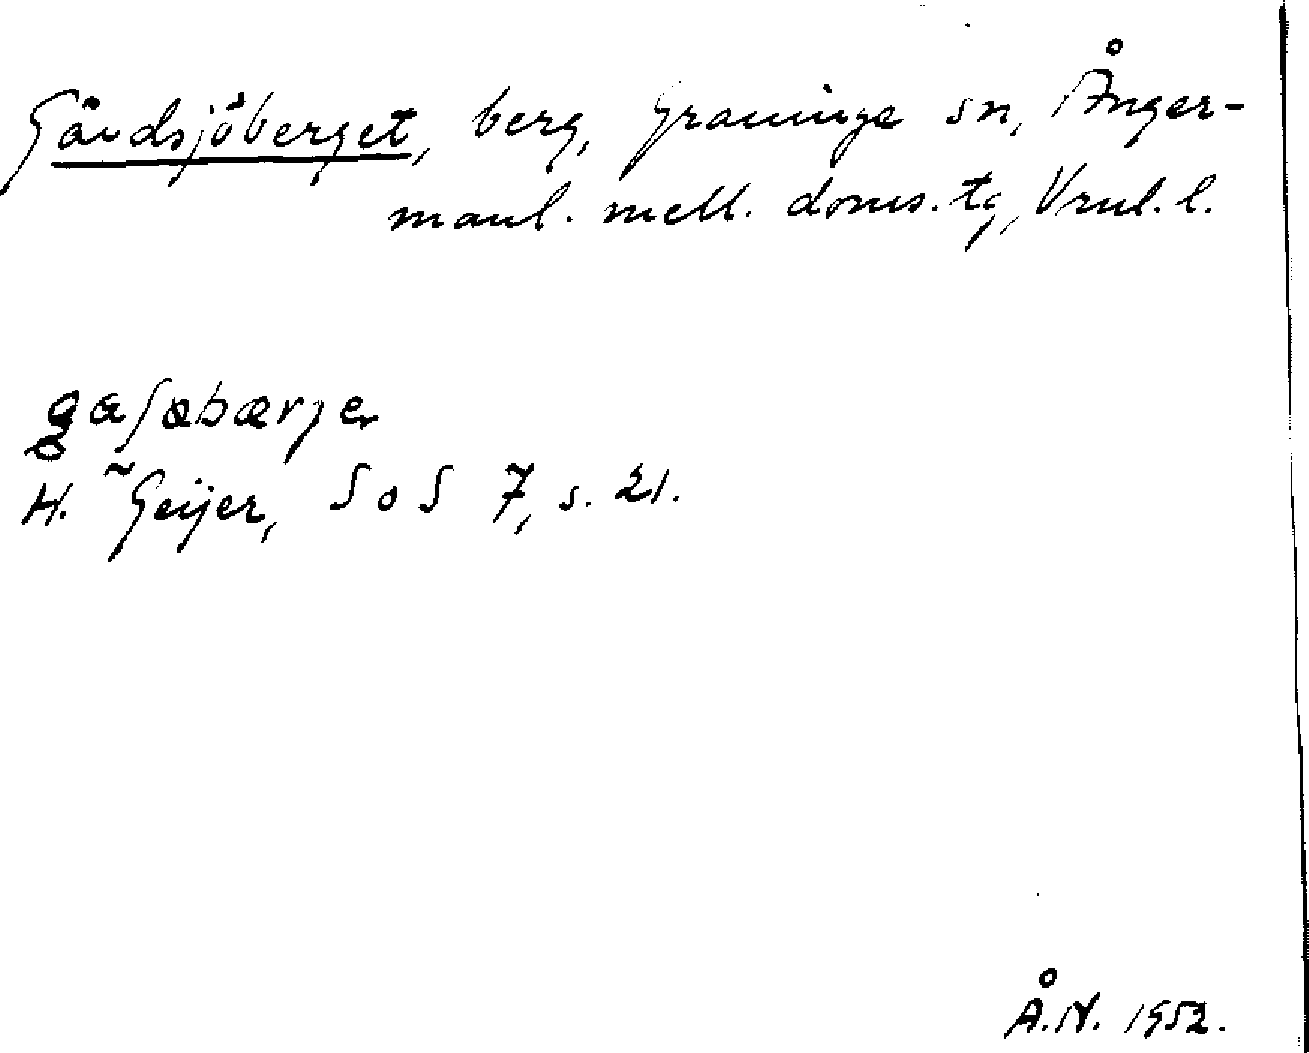 Gårdsjöberget, berg, Graninge sn, Ånger-
manl. mell. doms. tg, Vnul. l.
gaʃøbærje
H. Geijer, SoS 7, s. 21.
Å.N. 1952.